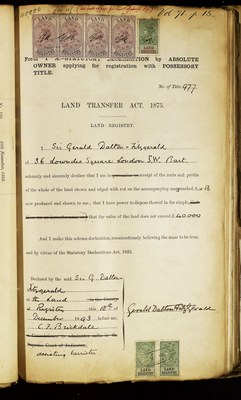 Vol 71. p. 15.
Form 1 A.—STATUTORY DECLARATION by ABSOLUTE
OWNER applying for registration with POSSESSORY
TITLE.
No. of Title 977.
LAND TRANSFER ACT, 1875.
LAND REGISTRY.
I Sir Gerald Dalton-Fitzgerald
of 36 Lowndes Square London S.W. Bart.
solemnly and sincerely declare that I am in receipt of the rents and profits
of the whole of the land shown and edged with red on the accompanying map
now produced and shown to me; that I have power to dispose thereof in fee simple,
that the value of the land does not exceed £
And I make this solemn declaration, conscientiously believing the same to be true,
and by virtue of the Statutory Declarations Act, 1835.
Declared by the said Sir G. Dalton
Fitzgerald
at the Land
Registry this 18th of
December 1893 before me,
C. F. Brickdale
Gerald Dalton Fitzgerald
LAND LAND LAND LAND LAND
LAND LAND